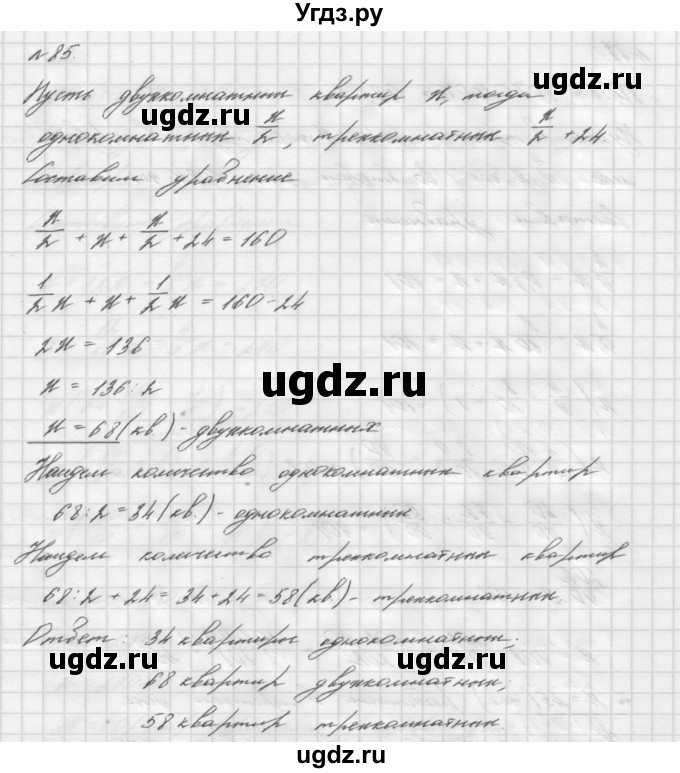 Угдз.ру
№ 85.
Пусть двухкомнатных квартир x, тогда
однокомнатных x/2, трехкомнатных x/2 + 24.
Составим уравнение
x/2 + x + x/2 + 24 = 160
1/2 x + x + 1/2 x = 160 - 24
2x = 136
x = 136 : 2
x = 68 (кв.) - двухкомнатных
Найдем количество однокомнатных квартир
68 : 2 = 34 (кв.) - однокомнатных.
Найдем количество трехкомнатных квартир
68 : 2 + 24 = 34 + 24 = 58 (кв) - трехкомнатных.
Ответ: 34 квартиры однокомнатных;
68 квартир двухкомнатных;
58 квартир трехкомнатных
ugdz.ru
ugdz.ru
ugdz.ru
ugdz.ru
ugdz.ru
ugdz.ru